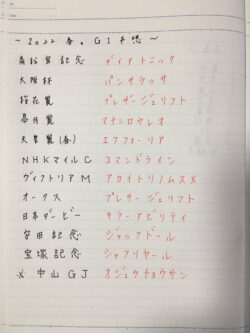 ～2022 春。GI予想～
高松宮記念 ダイアトニック
大阪杯 パンサラッサ
桜花賞 プレサージュリフト
皐月賞 マテンロウレオ
天皇賞(春) エフフォーリア
NHKマイルC コマンドライン
ヴィクトリアM アカイトリノムスメ
オークス プレサージュリフト
日本ダービー キラーアビリティ
安田記念 ジャックドール
宝塚記念 シャフリヤール
※ 中山GJ オジュウチョウサン